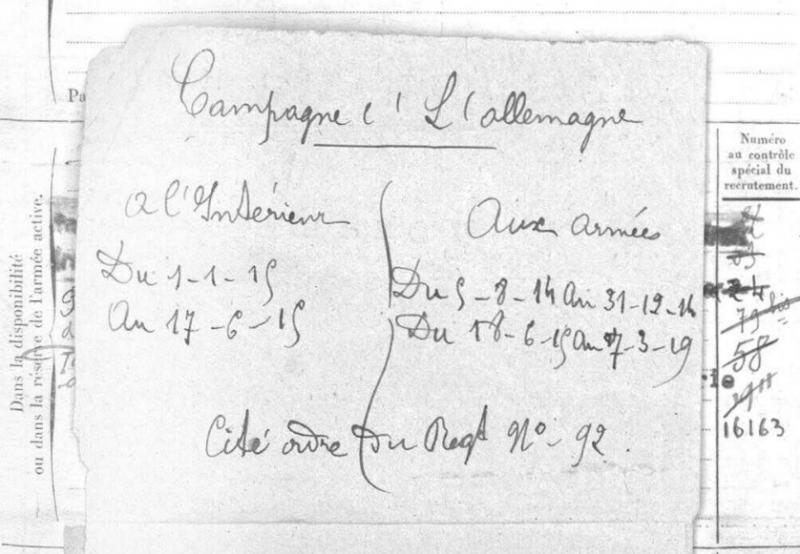 Pa
Campagne c' L'allemagne
Numéro
au contrôle
spécial du
recrutement.
Dans la disponibilité
ou dans la réserve de l'armée active.
a l'Intérieur
Du 1-1-15
Au 17-6-15
Aux armées
Du 5-8-14 Au 31-12-14
Du 18-6-15 Au 7-3-19
Cité ordre Du Regt No- 92.
24
79 bis
58
16163